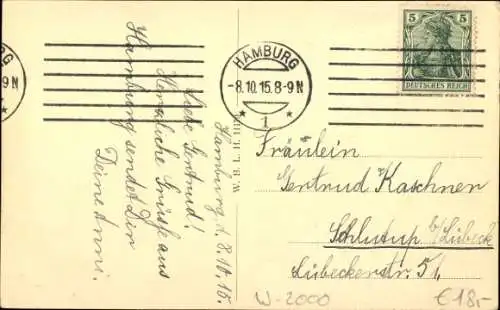 HAMBURG
-8.10.15.8-9N
* 1 *
5 5
DEUTSCHES REICH
9N
Hamburg d. 8.10.15.
Liebe Gertrud!
Herzliche Grüsse aus
Hamburg sendet Dir
Deine Anni.
W. B. L. H.
Fräulein
Gertrud Kaschner
Schlutup b/Lübeck
Lübeckerstr. 51.
W-2000
€18,-